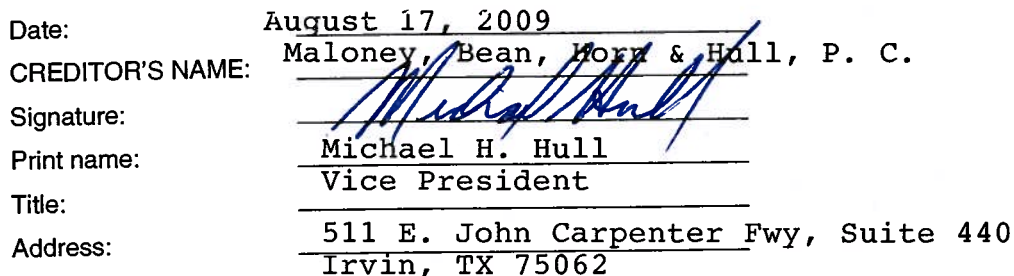 Date: August 17, 2009
CREDITOR'S NAME: Maloney, Bean, Horn & Hull, P. C.
Signature: Michael Hull
Print name: Michael H. Hull
Title: Vice President
Address: 511 E. John Carpenter Fwy, Suite 440
Irvin, TX 75062